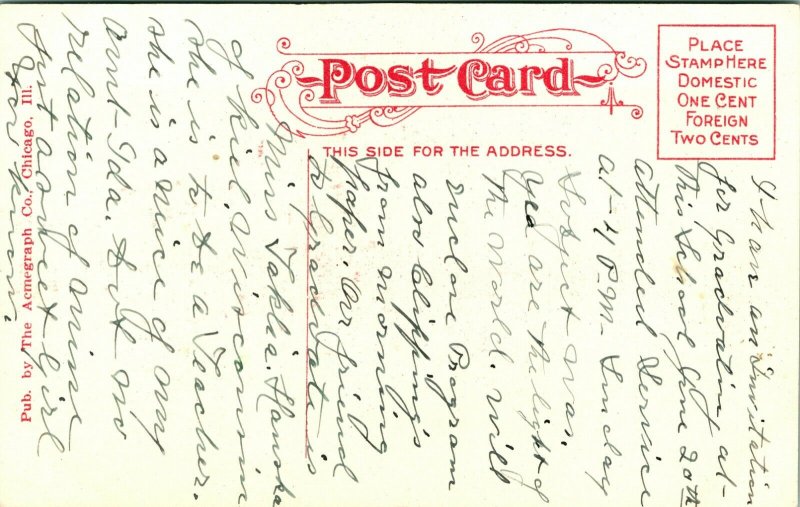 Post Card
THIS SIDE FOR THE ADDRESS.
PLACE
STAMP HERE
DOMESTIC
ONE CENT
FOREIGN
TWO CENTS
Pub. by The Acmegraph Co., Chicago, Ill.
I have an Invitation
for Graduation at-
this School June 20th
attended Service
at-4 P.M. Sunday
Subject was.
Yea are the light of
the World. will
enclose Program
also Clipping's
from morning
paper. Our friend
to Graduate is
Miss Teklia. Hanska
of Kiel, Wisconsin
She is to be a Teacher.
she is a niece of my
aunt-Ida. but no
relation of mine
Just a sweet girl